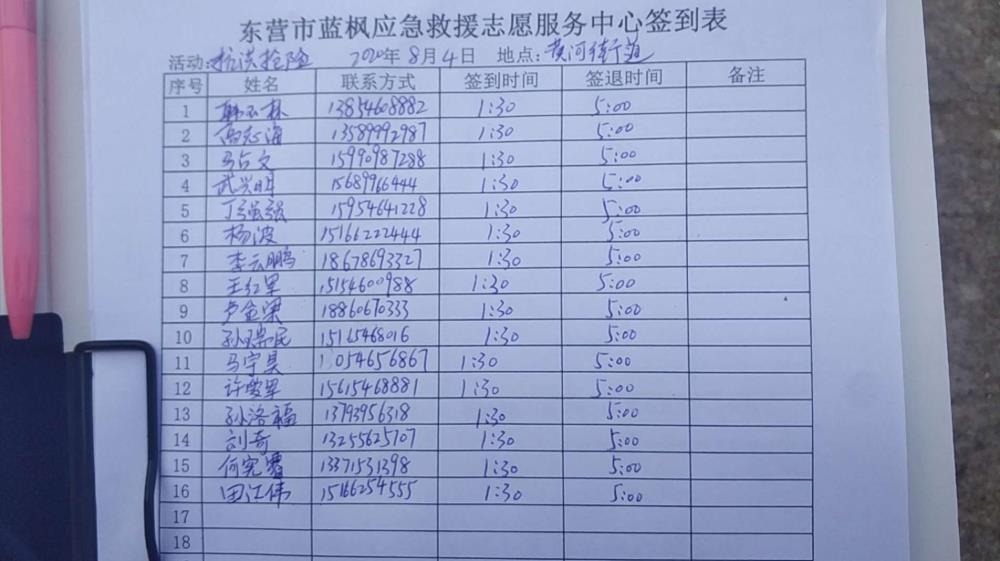 东营市蓝枫应急救援志愿服务中心签到表
活动:抗洪抢险 2020年8月4日 地点:黄河街道
序号 姓名 联系方式 签到时间 签退时间 备注
1 韩玉林 13854608882 1:30 5:00
2 高志海 13589992987 1:30 5:00
3 马占文 15990987288 1:30 5:00
4 武兴明 15689966444 1:30 5:00
5 丁强强 15954641228 1:30 5:00
6 杨波 15166222444 1:30 5:00
7 李云鹏 18678693327 1:30 5:00
8 王红军 15154600988 1:30 5:00
9 卢金梁 18860670333 1:30 5:00
10 孙瑞民 15165468016 1:30 5:00
11 马宁昊 1:30 5:00
12 许雪军 15615468881 1:30 5:00
13 孙洛福 13793956318 1:30 5:00
14 刘奇 13255625707 1:30 5:00
15 何宪 13371531398 1:30 5:00
16 田江伟 15166254555 1:30 5:00
17
18